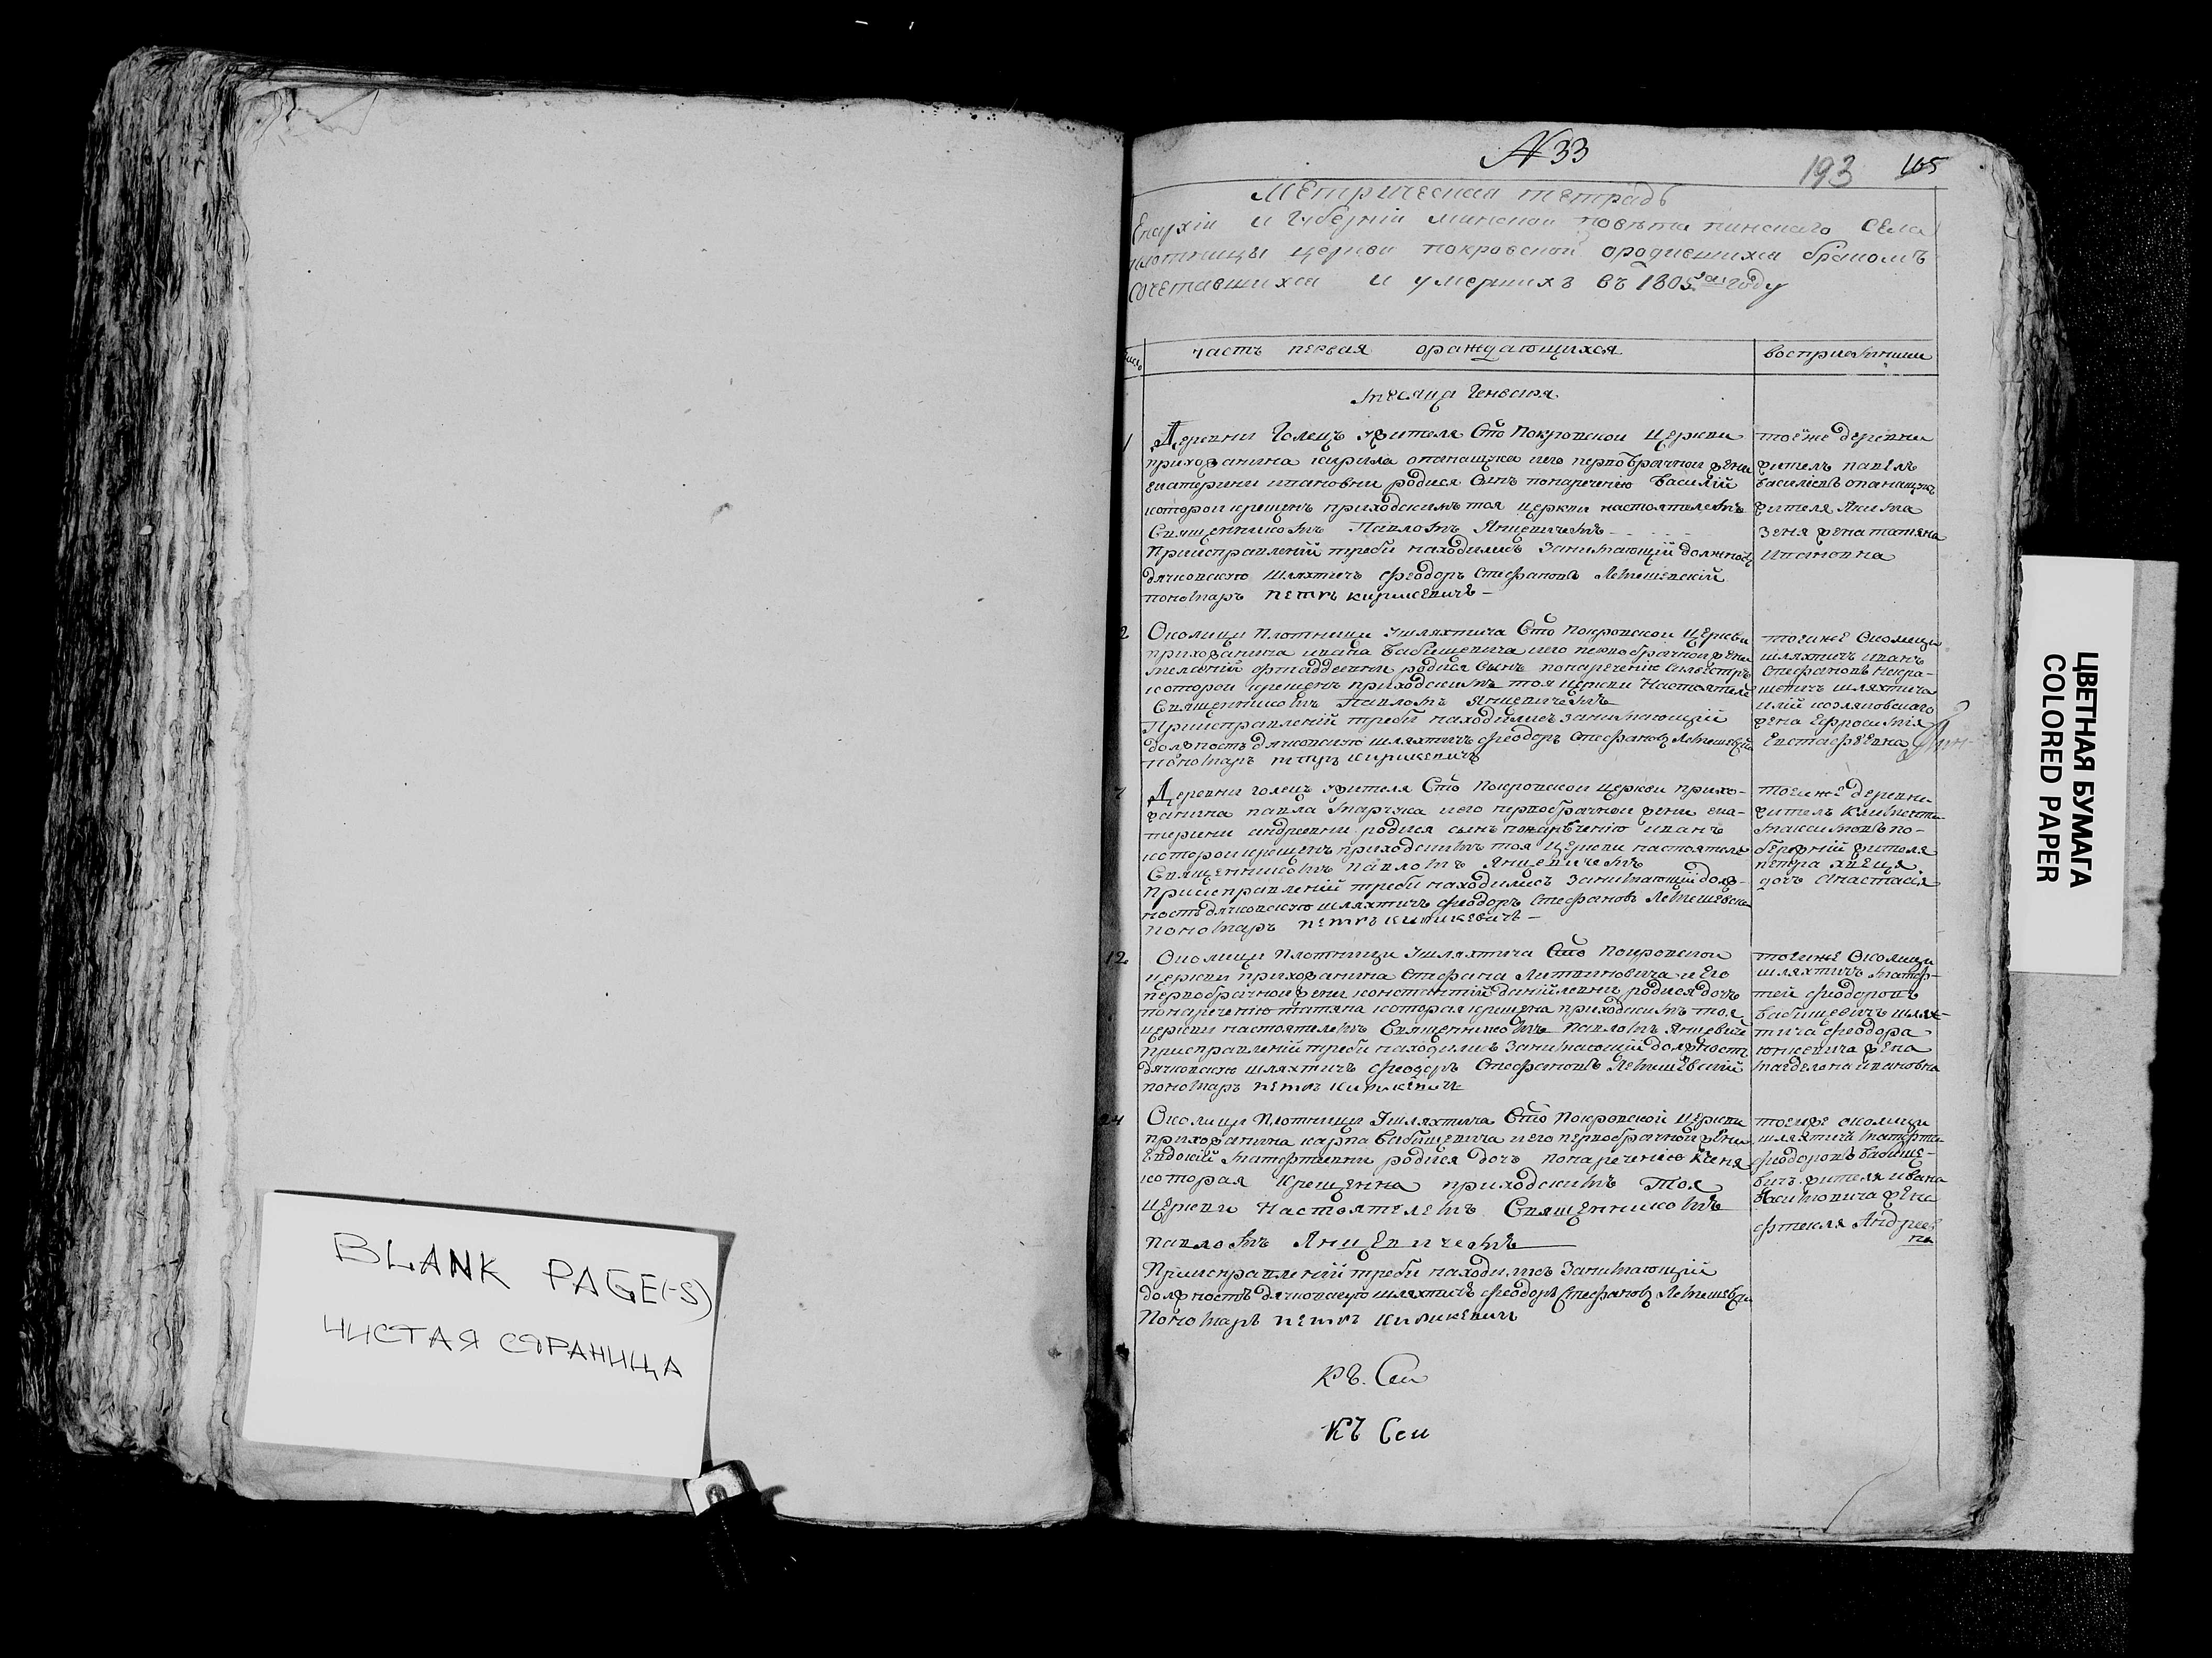 BLANK PAGE(-S)
ЧИСТАЯ СТРАНИЦА
N 33
193 165
Метрическая тетрадь
Епархіи и Губерніи минской повѣта пинскаго Села
плотницы церкви покровской ородившихся бракомъ
сочетавшихся и умершихъ въ 1805 году
число
часть первая ораждающихся
восприемники
месяца Генваря
1
Деревни Голецъ жителя Сто Покровской Церкви
прихожанина кирила опанащука иего первобрачной жени
Екатерини ивановни родися Сынъ понаречению Василій
которой крещенъ приходскимъ тоя церкви настоятелемъ
Священникомъ Павломъ Янцевичемъ
Приисправленій треби находились Занимающій должность
дячковскую Шляхтичъ Феодоръ Стефановъ Лемешевскій
пономаръ петръ кирикевичъ
тоейже деревни
житель павелъ
василіевъ опанащукъ
жителя Якима
зеня жена татяна
Ивановна
2
Околици Плотници Ушляхтича Сто Покровской Церкви
прихожанина ивана Бабишевича иего первобрачной жени
меланіи фтаддеевни родися Сынъ понаречению Силвестръ
которой крещенъ приходскимъ тоя церкви Настоятеле
Священникомъ Павломъ Янцевичемъ
Приисправленій треби находились занимающій
должность дячковскую шляхтичъ феодоръ Стефановъ Лемешевскій
пономаръ петръ кирикевичъ
тоейже Околици
шляхтичъ иванъ
Стефановъ некра-
шевичъ шляхтича
иліи козляковскаго
жена Ефросимія
Евстафѣевна
7
Деревни голецъ жителя Сто Покровской церкви прихо-
жанина павла марчука иего первобрачной жени ека-
терини андреевни родися сынъ понаречению иванъ
которой крещенъ приходскимъ тоя церкви настоятеле
Священникомъ павломъ Янцевичемъ
Приисправленій треби находились занимающій долж-
ность дячковскую шляхтичъ феодоръ Стефановъ Лемешевски
пономаръ петръ кирикевичъ
тоейже деревни
житель Климентъ
максимовъ по-
бережній жителя
петра хвеця
дочь Анастасія
12
Околици Плотници Ушляхтича Сто Покровской
церкви прихожанина Стефана Литвиновича и Его
первобрачной жени констентіи даніилевни родися дочъ
понаречению татяна которая крещена приходскимъ тоя
церкви настоятелемъ Священникомъ Павломъ Янцевиче
приисправленій треби находились Занимающій должность
дячковскую шляхтичъ феодоръ Стефановъ Лемешевскій
пономаръ петръ кирикевичъ
тоейже Околици
шляхтичъ матф-
тей феодоровъ
бабишевичъ шлях-
тича феодора
юнкевича жена
магделена ивановна
24
Околици Плотници Ушляхтича Сто Покровской церкви
прихожанина карпа бабишевича иего первобрачной жени
Евдокіи матфтеевни родися дочъ понаречению Ксеня
которая Крещенна приходскимъ Тоя
церкви Настоятелемъ Священникомъ
павломъ Янцевичемъ
Приисправленій треби находились Занимающій
должность дячковскую шляхтичъ феодоръ Стефановъ Лемешевски
Пономаръ петръ кирикевичъ
тоейже околици
шляхтичъ матфти
феодоровъ бабише-
вичъ жителя ивана
жена
фтекля Андреев
на
Къ. Сеи
Къ Сеи
ЦВЕТНАЯ БУМАГА
COLORED PAPER